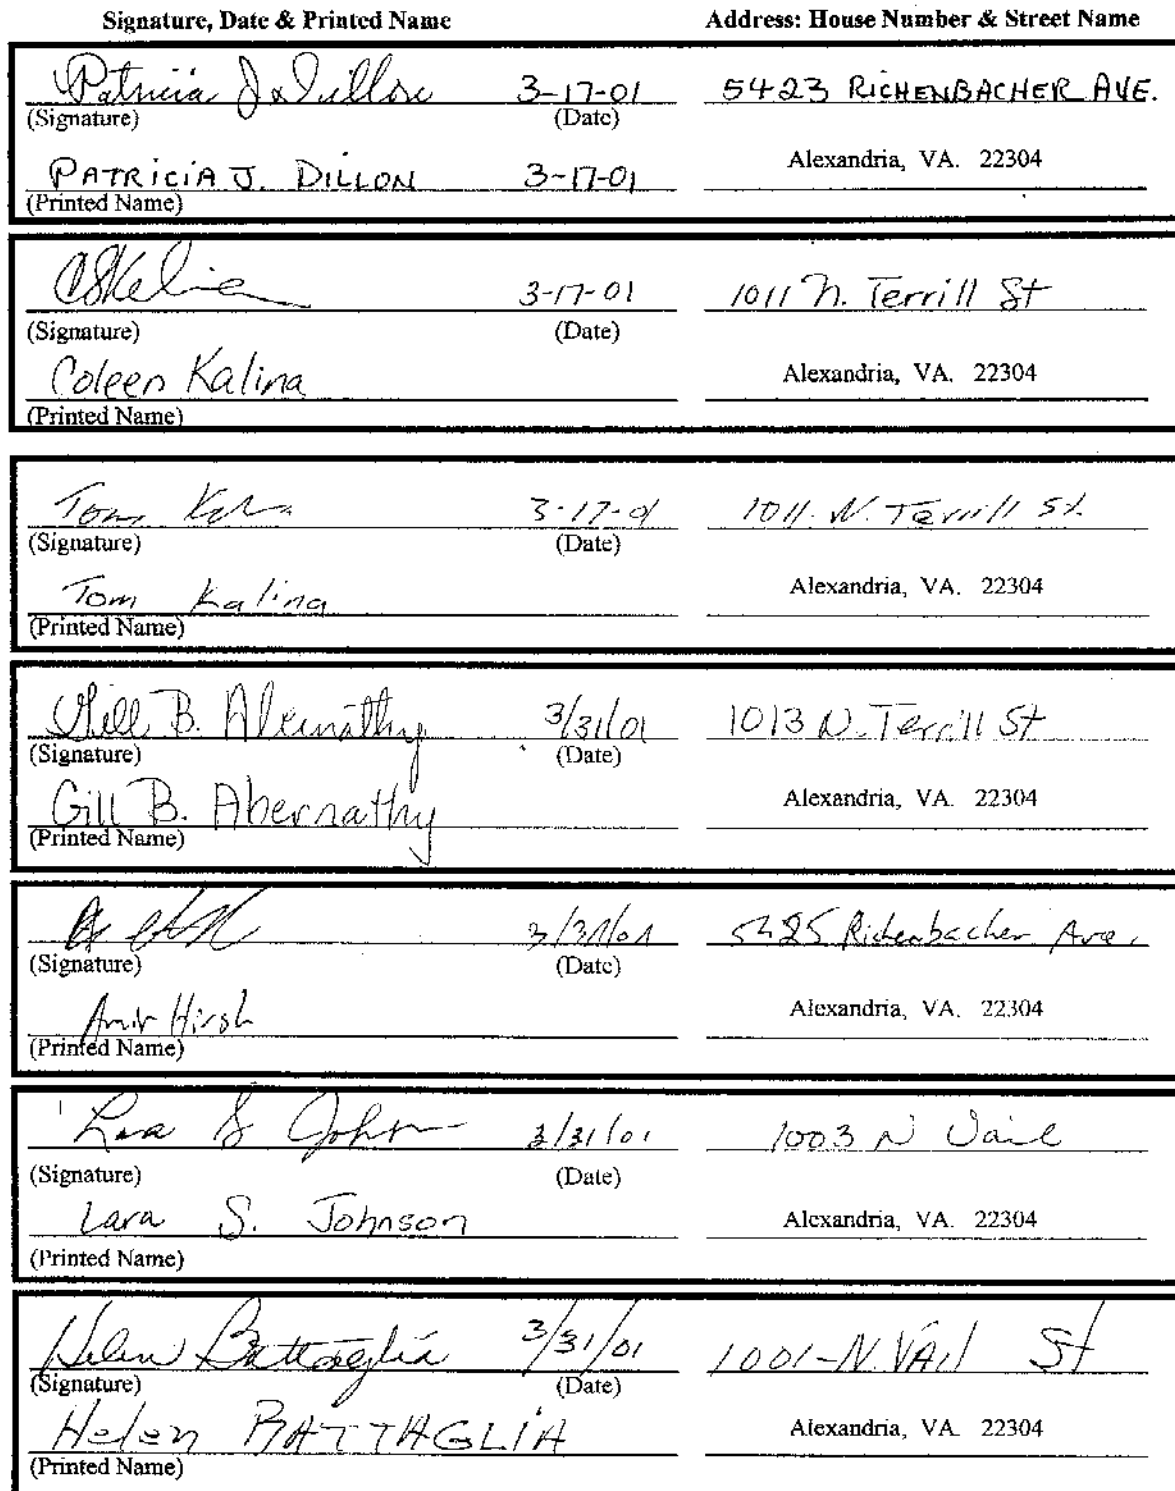 Signature, Date & Printed Name Address: House Number & Street Name
Patricia J. Dillon 3-17-01 5423 RICHENBACHER AVE.
(Signature) (Date)
Alexandria, VA. 22304
PATRICIA J. DILLON 3-17-01
(Printed Name)
3-17-01 1011 N. Terrill St
(Signature) (Date)
Coleen Kalina Alexandria, VA. 22304
(Printed Name)
Tom 3-17-01 1011 N. Terrill St.
(Signature) (Date)
Tom Kalina Alexandria, VA. 22304
(Printed Name)
Gill B. Abernathy 3/31/01 1013 N. Terrill St
(Signature) (Date)
Gill B. Abernathy Alexandria, VA. 22304
(Printed Name)
3/31/01 5425 Richenbacher Ave.
(Signature) (Date)
Amir Hirsh Alexandria, VA. 22304
(Printed Name)
Lara S Johnson 3/31/01 1003 N Vail
(Signature) (Date)
Lara S. Johnson Alexandria, VA. 22304
(Printed Name)
Helen Battaglia 3/31/01 1001-N. VAil St
(Signature) (Date)
Helen BATTAGLIA Alexandria, VA. 22304
(Printed Name)